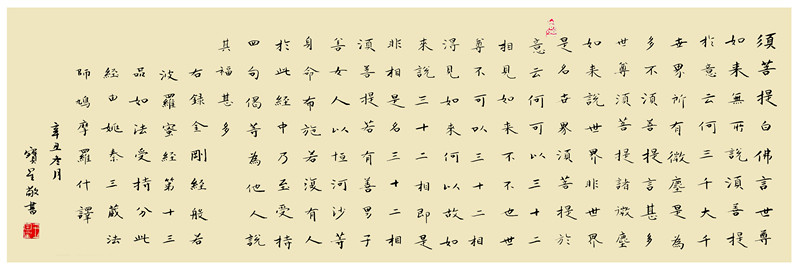 須菩提白佛言世尊
如来無所說須菩提
於意云何三千大千
世界所有微塵是為
多不須菩提言甚多
世尊須菩提諸微塵
如来說世界非世界
是名世界須菩提於
意云何可以三十二
相見如来不不也世
尊不可以三十二相
得見如来何以故如
来說三十二相即是
非相是名三十二相
須菩提若有善男子
善女人以恒河沙等
身命布施若復有人
於此經中乃至受持
四句偈等為他人說
其福甚多
右録金剛經般若
波羅蜜經第十三
品如法受持分此
經由姚秦三藏法
師鳩摩羅什譯
辛丑冬月
寶星敬書